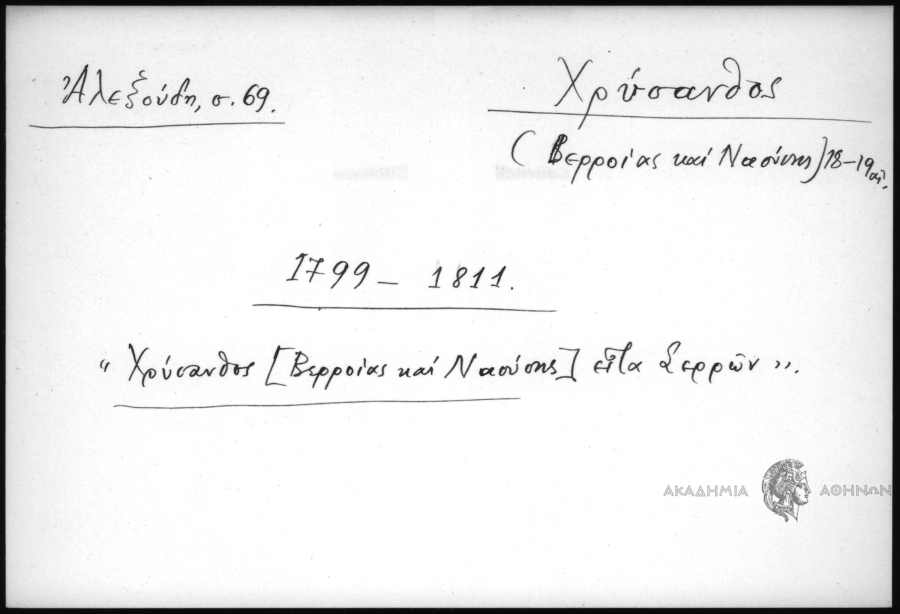 Ἀλεξούδη, σ. 69.
Χρύσανθος
(Βερροίας καί Νασύσης) 18-19 αἰ.
1799 - 1811.
“ Χρύσανθος [Βερροίας καί Ναούσης] εἶτα Σερρῶν ”.
ΑΚΑΔΗΜΙΑ ΑΘΗΝΩΝ